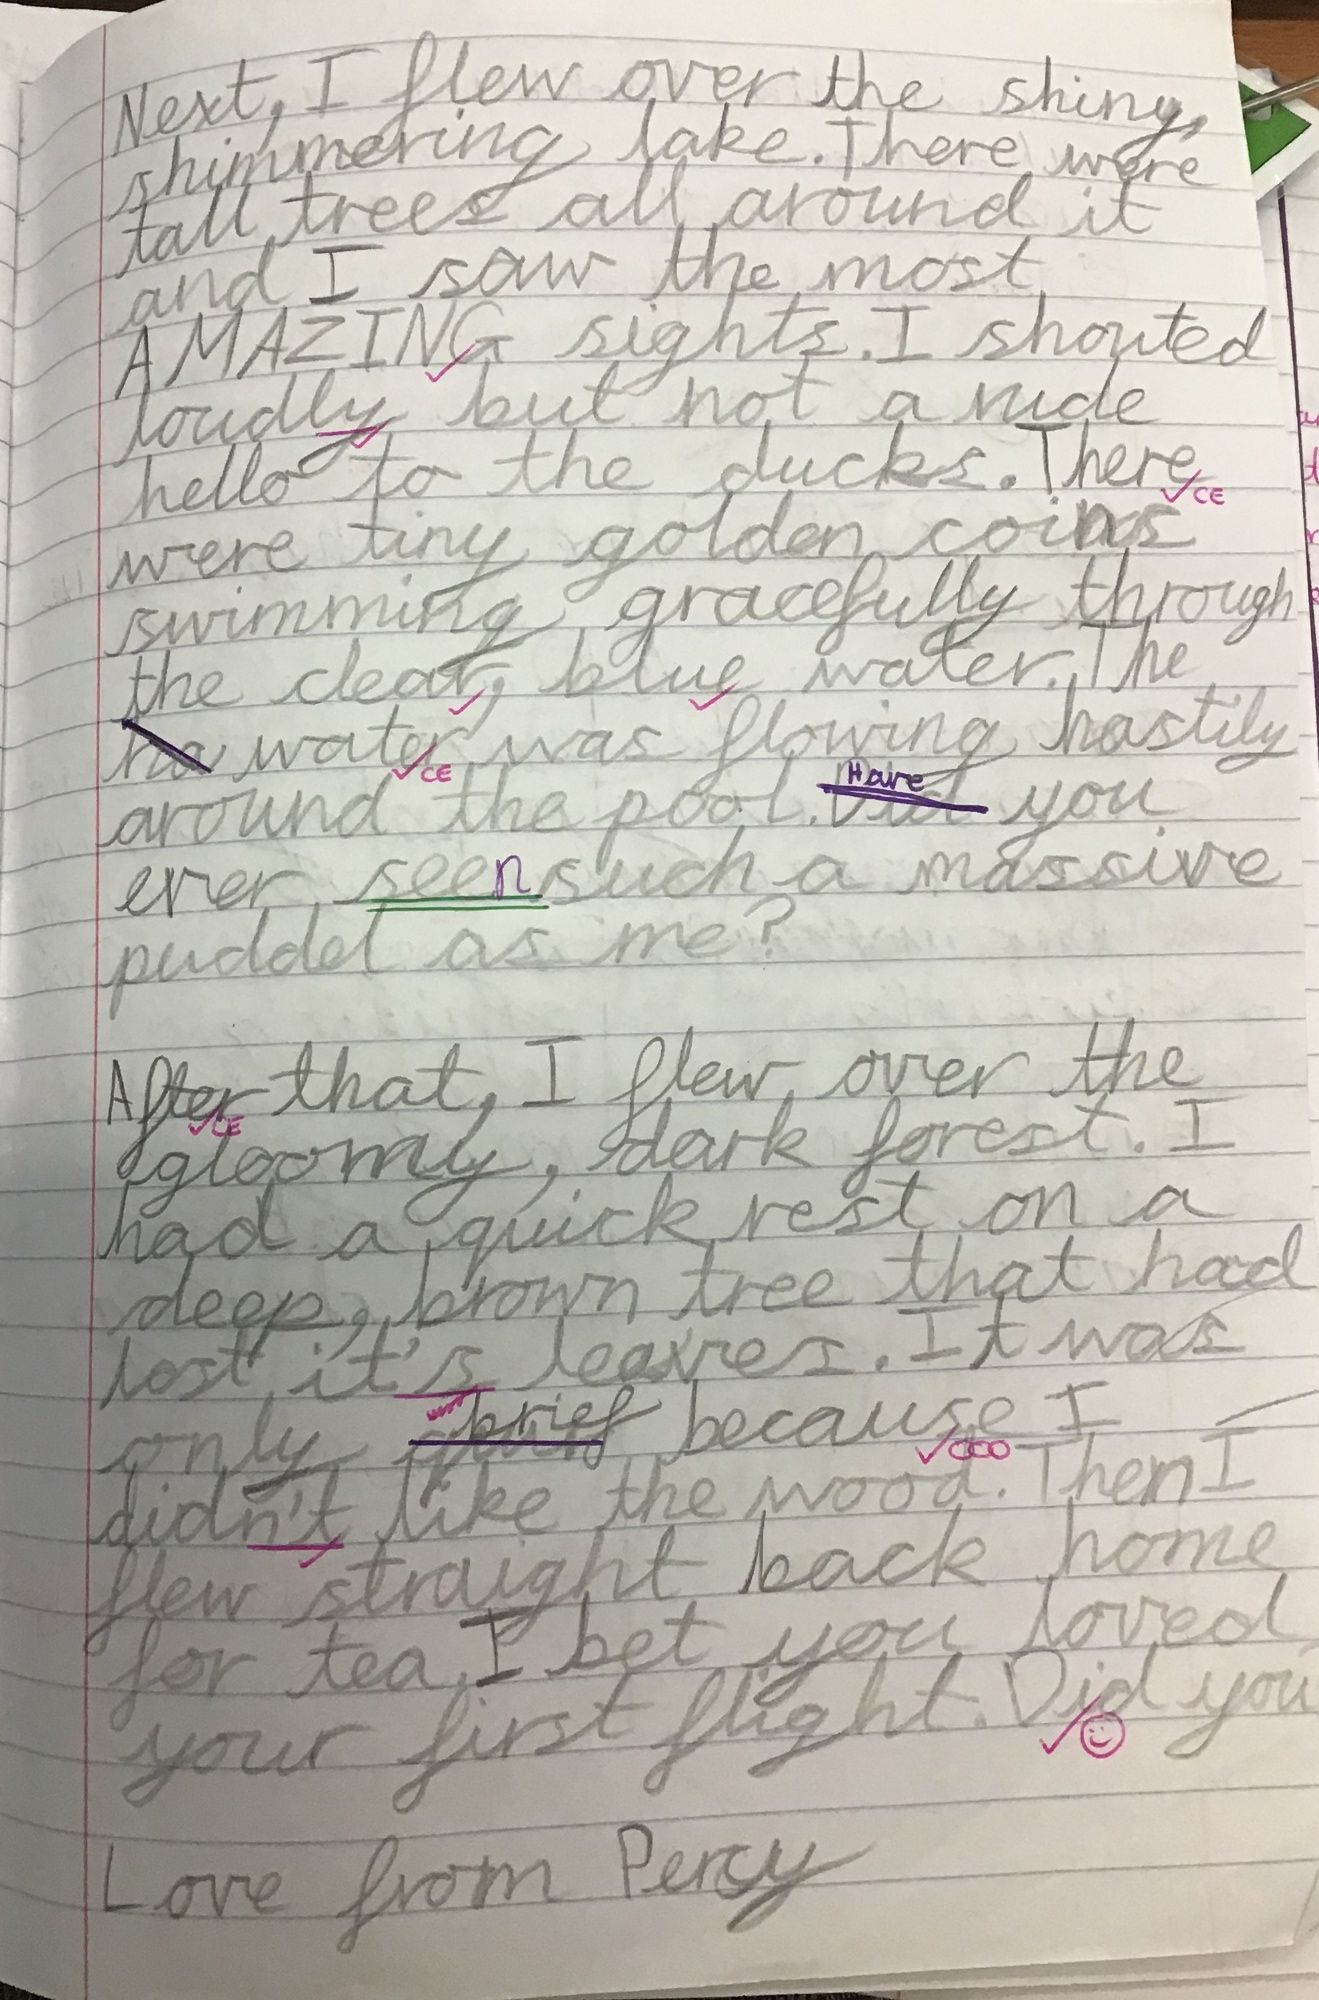 Next, I flew over the shiny,
shimmering lake. There were
tall trees all around it
and I saw the most
AMAZING sights. I shouted
loudly but not a rude
hello to the ducks. There
CE
were tiny golden coins
swimming gracefully through
the clear, blue water. The
water was flowing hastily
CE
Have
around the pool. Did you
ever seen such a massive
puddel as me?
After that, I flew over the
CE
gloomy, dark forest. I
had a quick rest on a
deep, brown tree that had
lost it's leaves. It was
only brief because I
didn't like the wood. Then I
flew straight back home
for tea I bet you loved
your first flight. Did you
Love from Percy